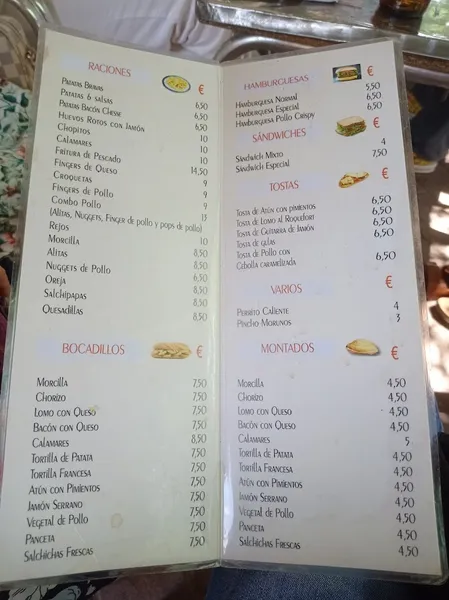 RACIONES €
Patatas Bravas 6,50
Patatas 6 salsas 6,50
Patatas Bacón Chesse 6,50
Huevos Rotos con Jamón 10
Chopitos 10
Calamares 10
Fritura de Pescado 14,50
Fingers de Queso 9
Croquetas 9
Fingers de Pollo 9
Combo Pollo
(Alitas, Nuggets, Finger de pollo y pops de pollo)
Rejos 10
Morcilla 8,50
Alitas 8,50
Nuggets de Pollo 8,50
Oreja 6,50
Salchipapas 8,50
Quesadillas 8,50
BOCADILLOS €
Morcilla 7,50
Chorizo 7,50
Lomo con Queso 7,50
Bacón con Queso 7,50
Calamares 8,50
Tortilla de Patata 7,50
Tortilla Francesa 7,50
Atún con Pimientos 7,50
Jamón Serrano 7,50
Vegetal de Pollo 7,50
Panceta 7,50
Salchichas Frescas 7,50
HAMBURGUESAS €
Hamburguesa Normal 5,50
Hamburguesa Especial 6,50
Hamburguesa Pollo Crispy 6,50
SÁNDWICHES €
Sandwich Mixto 4
Sandwich Especial 7,50
TOSTAS €
Tosta de Atún con pimientos 6,50
Tosta de Lomo al Roquefort 6,50
Tosta de Guitarra de Jamón 6,50
Tosta de gulas 6,50
Tosta de Pollo con
Cebolla caramelizada 6,50
VARIOS €
Perrito Caliente 4
Pincho Morunos 3
MONTADOS €
Morcilla 4,50
Chorizo 4,50
Lomo con Queso 4,50
Bacón con Queso 4,50
Calamares 5
Tortilla de Patata 4,50
Tortilla Francesa 4,50
Atún con Pimientos 4,50
Jamón Serrano 4,50
Vegetal de Pollo 4,50
Panceta 4,50
Salchichas Frescas 4,50